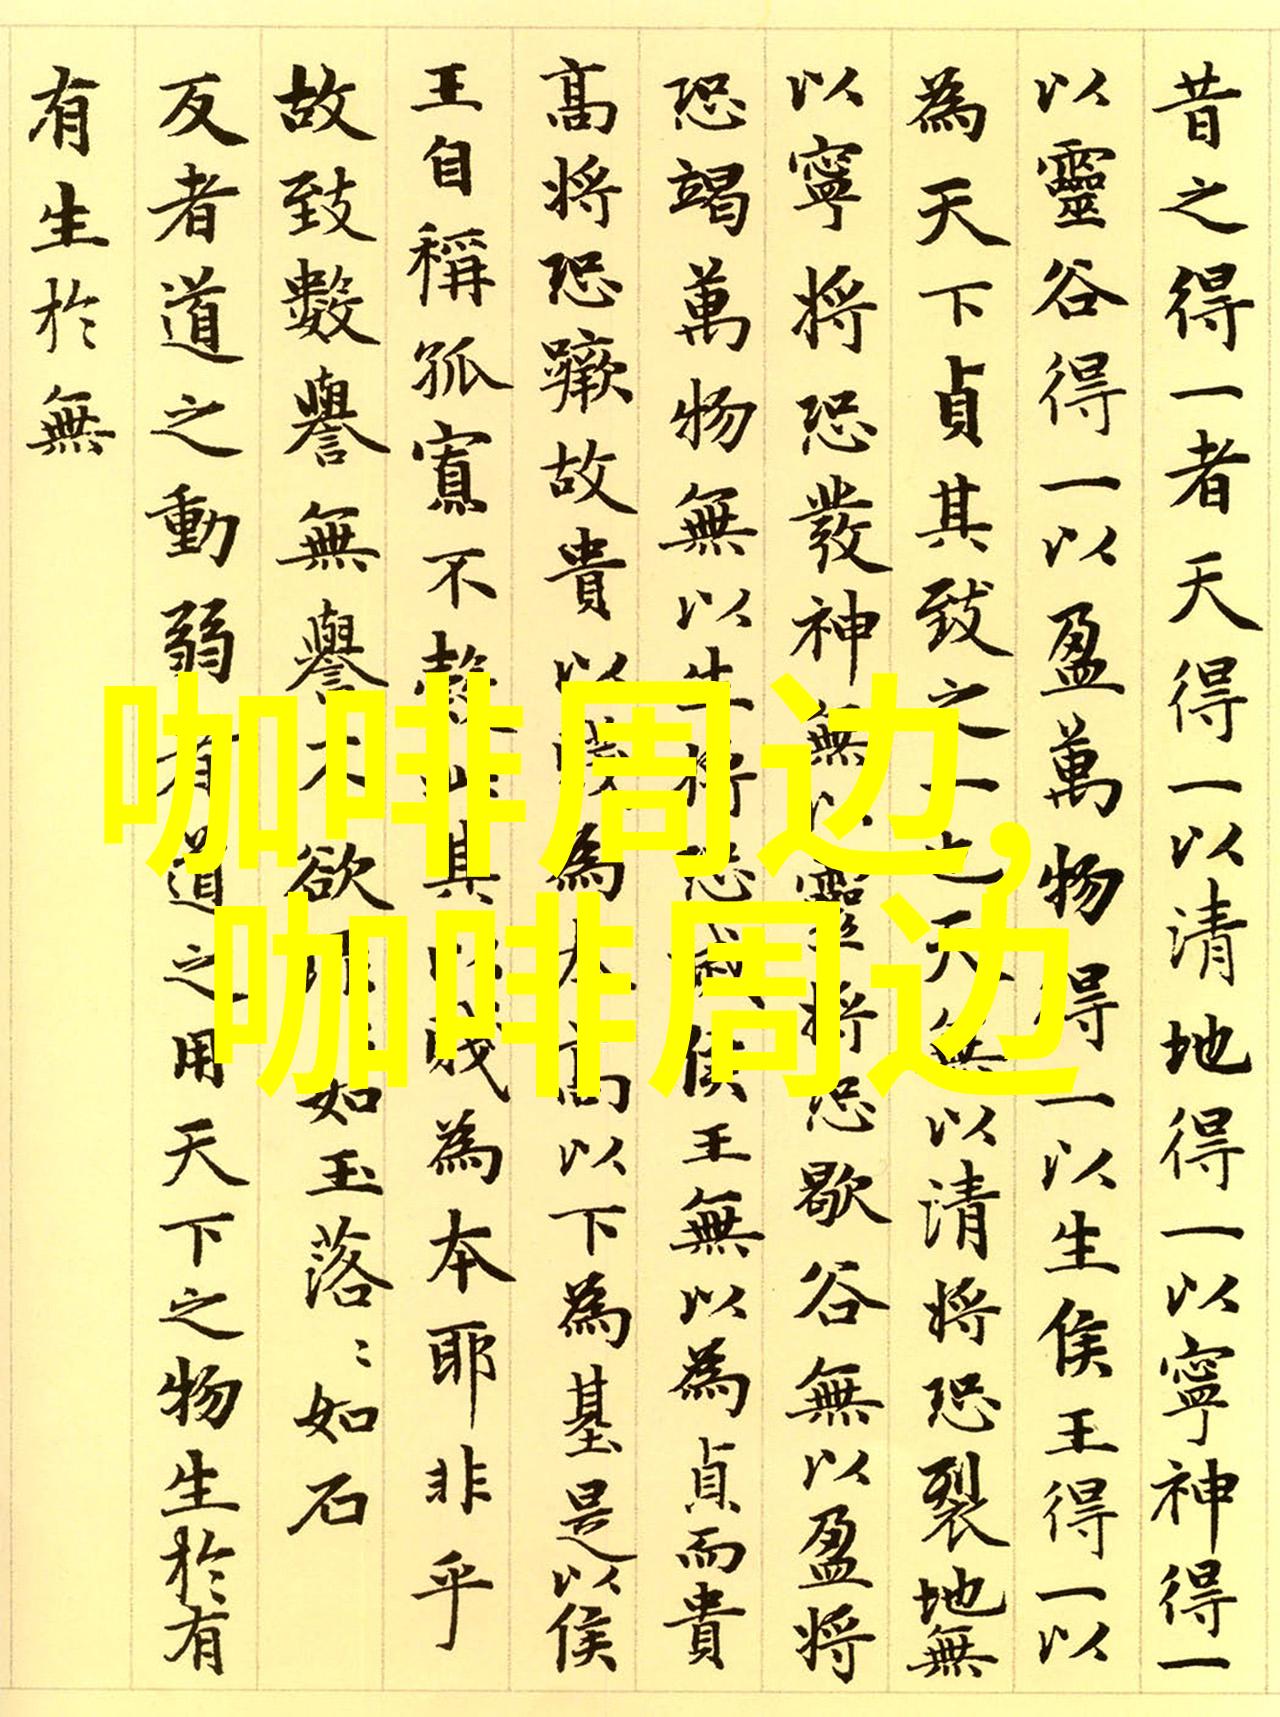 昔之得一者天得一以清地得一以寧神得一
以靈谷得一以盈萬物得一以生侯王得一以
為天下貞其致之一也天無以清將恐裂地無
以寧將恐發神無以靈將恐歇谷無以盈將
恐竭萬物無以生將恐滅侯王無以為貞而貴
高將恐蹶故貴以賤為本高以下為基是以侯
王自稱孤寡不穀此其以賤為本耶非乎
故致數譽無譽不欲如玉落〻如石
反者道之動弱有道之用天下之物生於有
有生於無
咖啡周边,
咖啡周边